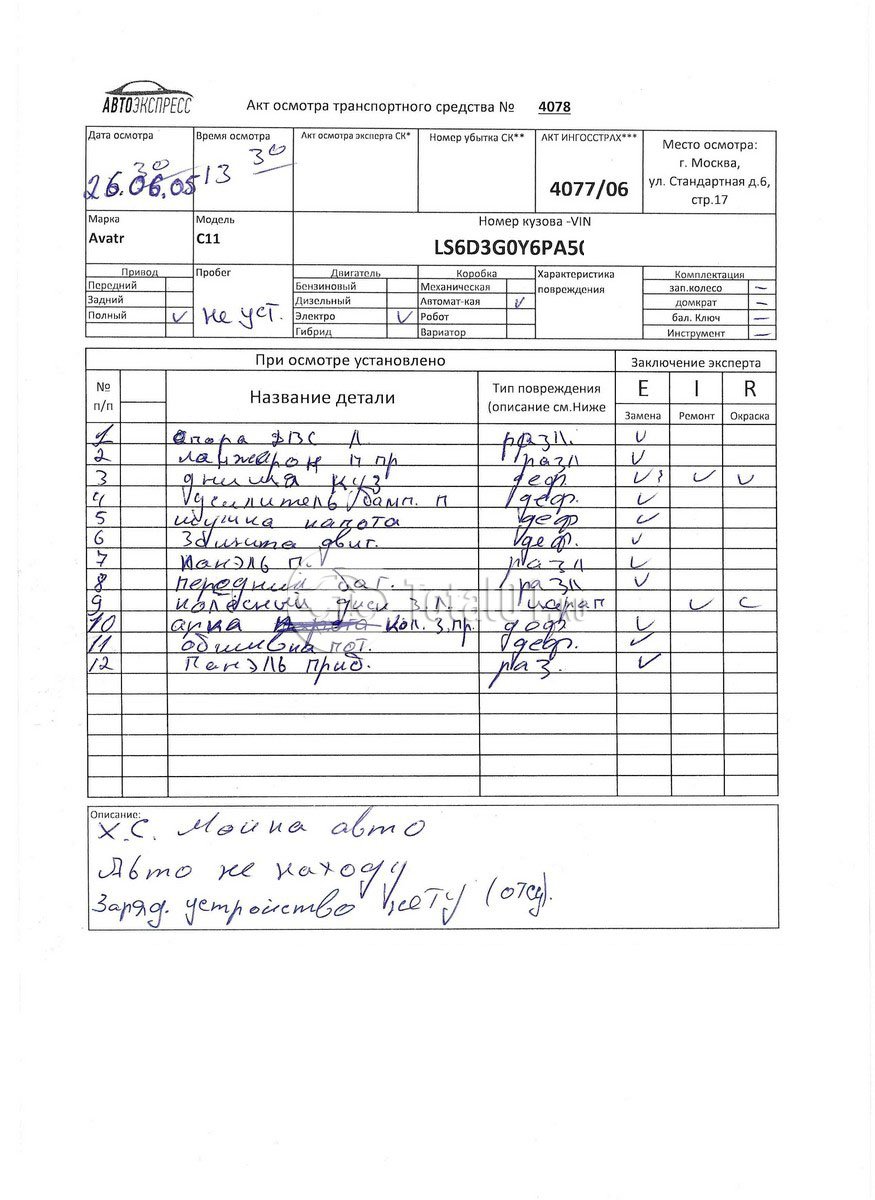 АВТОЭКСПРЕСС
Акт осмотра транспортного средства № 4078
Дата осмотра
Время осмотра
Акт осмотра эксперта СК*
Номер убытка СК**
АКТ ИНГОССТРАХ***
Место осмотра:
г. Москва,
ул. Стандартная д.6,
стр.17
30
26.06.05
13 30
4077/06
Марка
Модель
Номер кузова -VIN
Avatr
C11
LS6D3G0Y6PA5(
Привод
Пробег
Двигатель
Коробка
Характеристика
повреждения
Комплектация
Передний
Бензиновый
Механическая
зап.колесо –
Задний
Дизельный
Автомат-кая ✓
домкрат –
Полный ✓
не уст.
Электро ✓
Робот
бал. Ключ –
Гибрид
Вариатор
Инструмент –
При осмотре установлено
Заключение эксперта
№
п/п
Название детали
Тип повреждения
(описание см.Ниже
E I R
Замена Ремонт Окраска
1 опора ДВС Л разл. ✓
2 лонжерон п пр разл ✓
3 днища куз деф. ✓ ✓ ✓
4 усилитель бамп. п деф. ✓
5 шушка капота деф ✓
6 Защита двиг. деф. ✓
7 Панэль п. разл ✓
8 передний баг. разл ✓
9 колёсный диск З Л царап ✓ ✓
10 арка кол. З. пр. деф ✓
11 обшивка пот. деф. ✓
12 Панэль приб. раз. ✓
Total01.ru
Описание:
Х.С. Мойка авто
Авто не находу
Заряд. устройство нету (отсу).